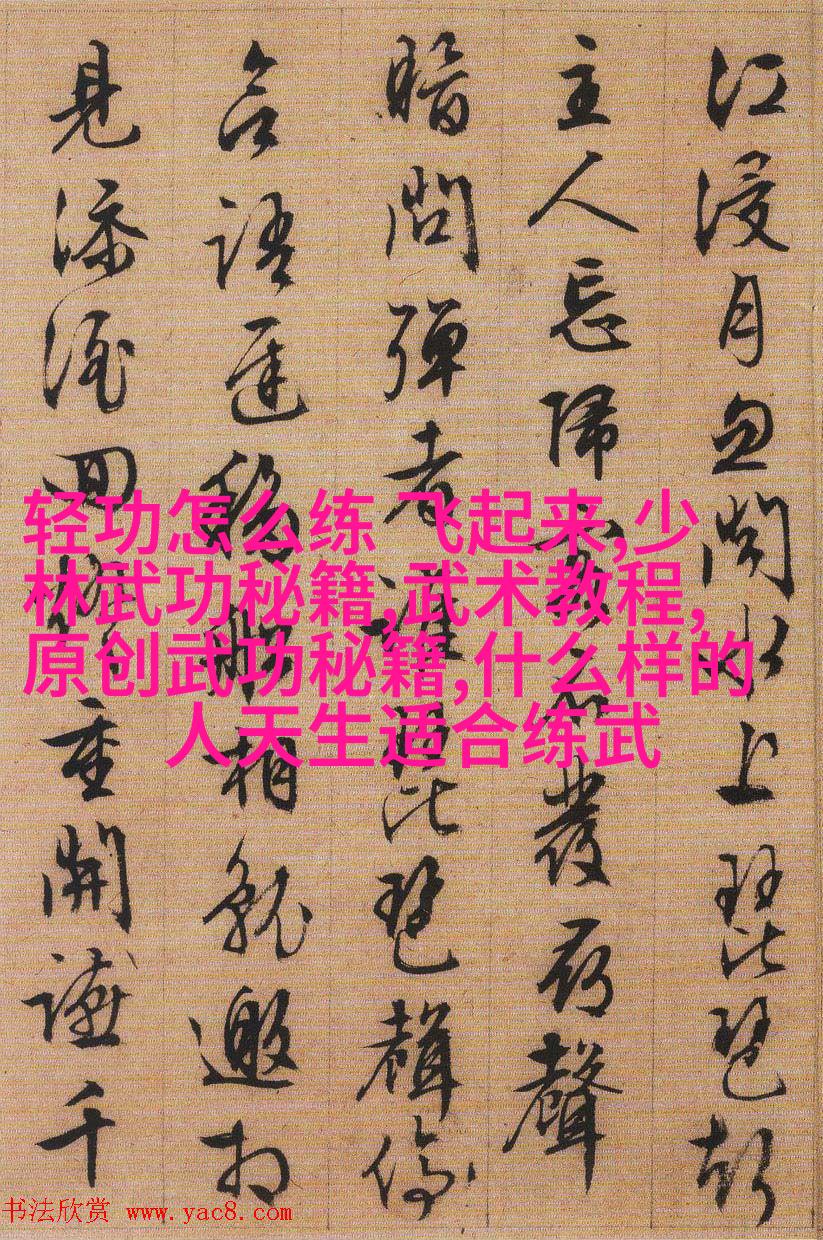 江浸月忽聞水上琵琶聲
主人忘歸客不發尋聲
暗問彈者誰琵琶聲停
欲語遲移船相就邀相
見添酒回燈重開讌千
轻功怎么练 飞起来,少
林武功秘籍,武术教程,
原创武功秘籍,什么样的
人天生适合练武
书法欣赏 www.yac8.com